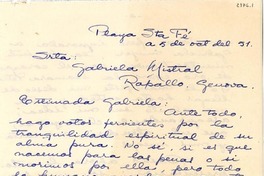 Playa Sta Fé
a 5 de oct del 31.
Srta:
Gabriela Mistral
Rápallo, Genova.
Estimada Gabriela: Ante todo,
hago votos fervientes por la
tranquilidad espiritual de su
alma pura. No sé, si es que
nacemos para las penas o si
morimos por ellas, pero todo